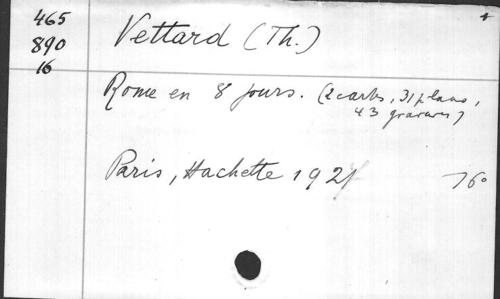 465
890
16
Vettard (Th.)
Rome en 8 jours. (2 cartes, 31 plans,
43 gravures)
Paris, Hachette 192